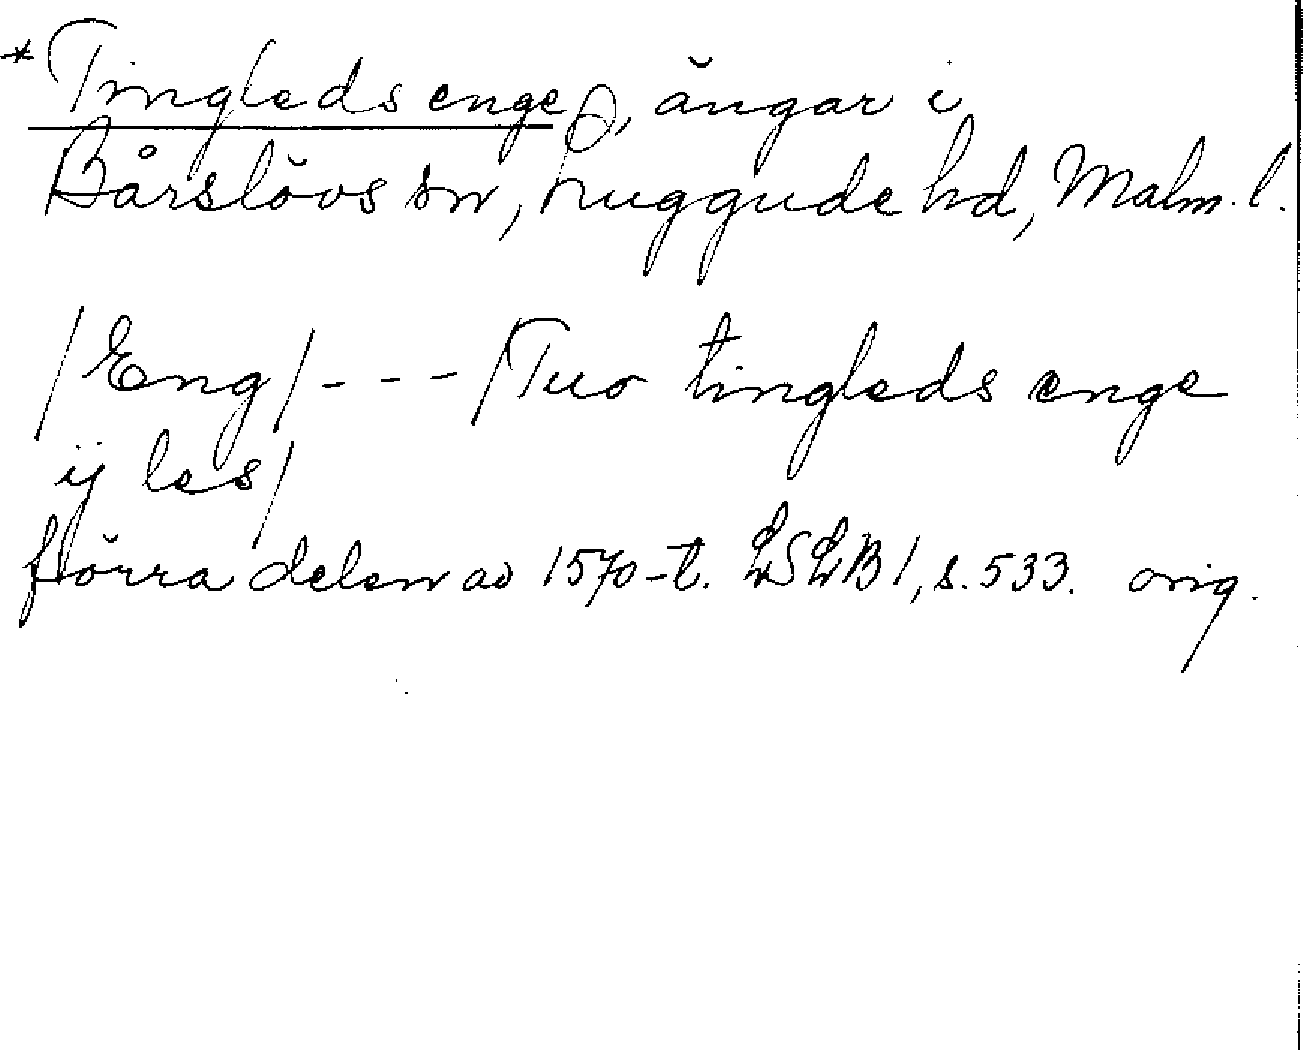 *Tingleds enge, ängar i
Bårslövs sn, Luggude hd, Malm. l.
/Eng/ - - - /Tuo tingleds enge
ij les/
förra delen av 1570-t. LSLB 1, s. 533. orig.